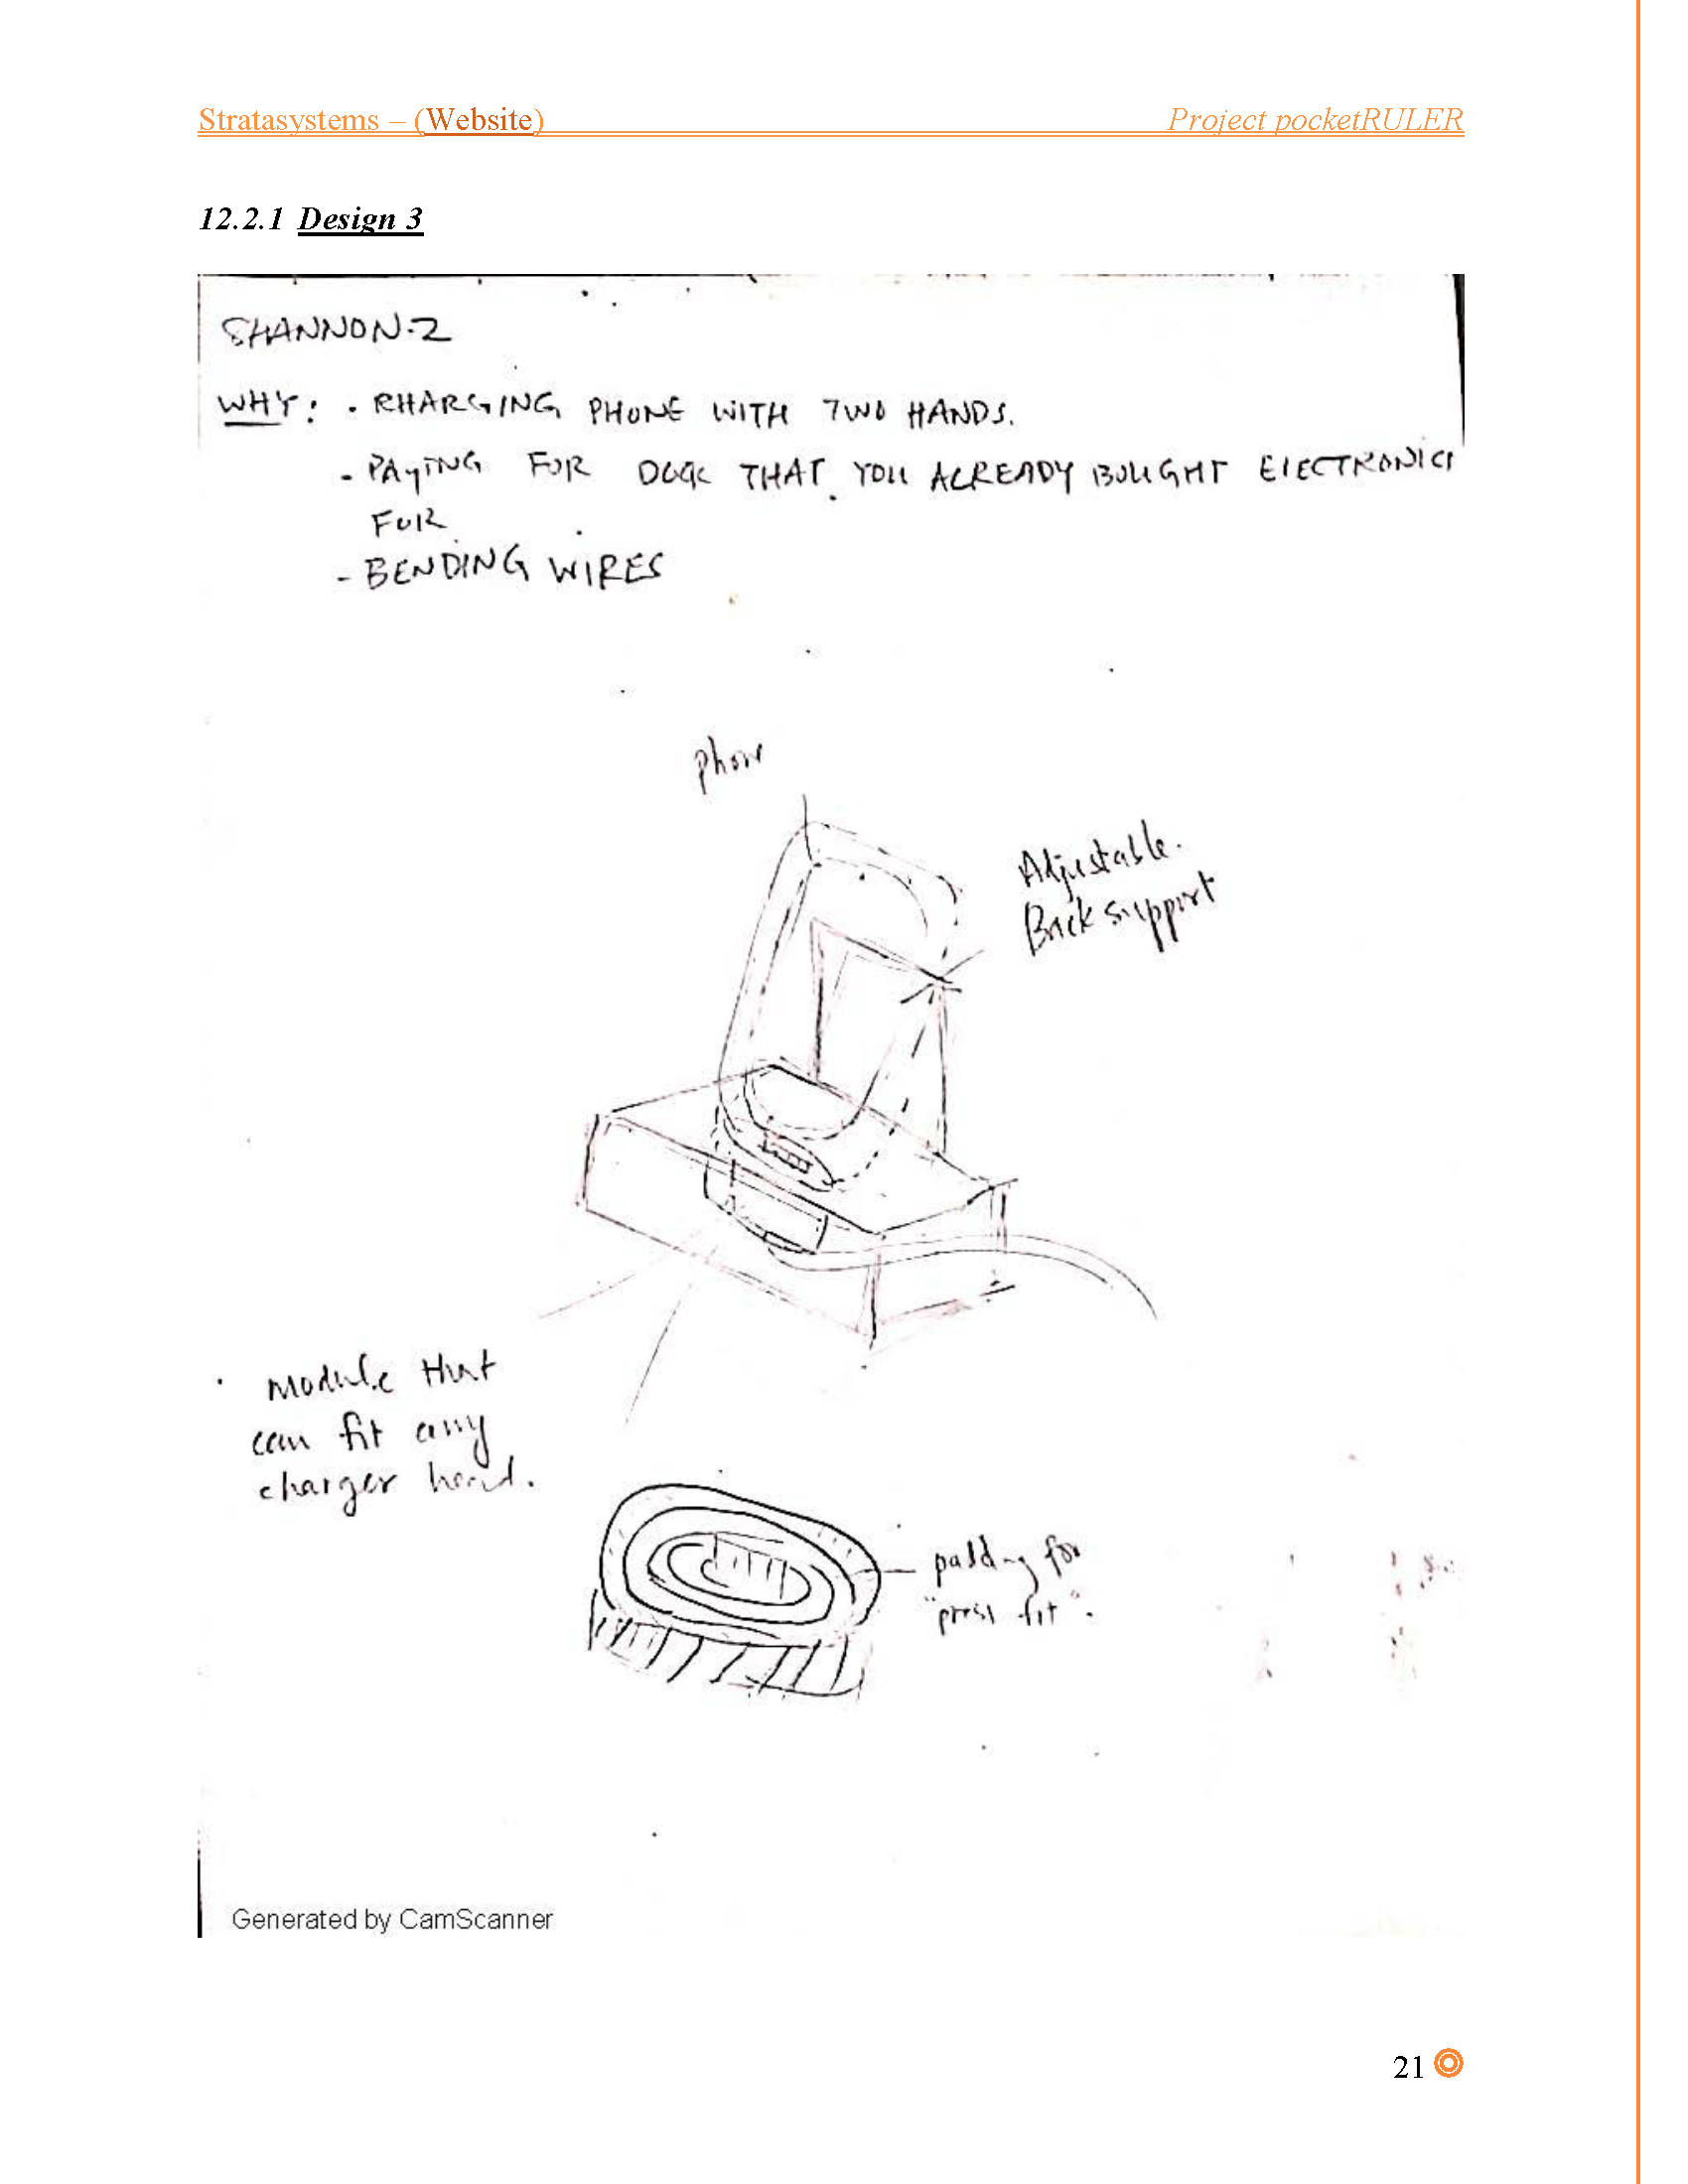 Stratasystems – (Website) Project pocketRULER
12.2.1 Design 3
SHANNON-2
WHY: . RHARGING PHONE WITH TWO HANDS.
- PAYING FOR DOCK THAT YOU ALREADY BOUGHT ELECTRONICS
FOR
- BENDING WIRES
phone
Adjustable.
Back support
. Module that
can fit any
charger head.
padding for
"press fit".
Generated by CamScanner
21